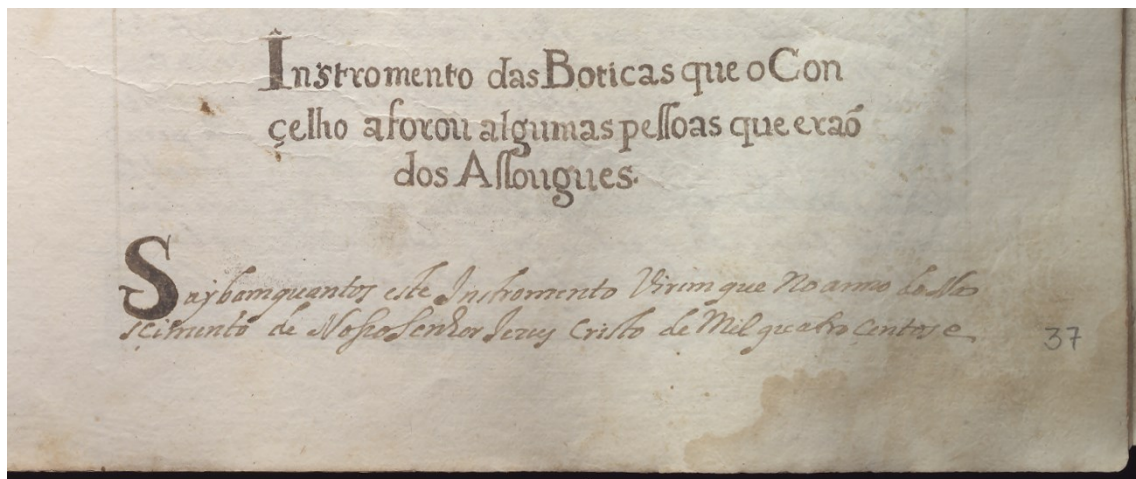 Instromento das Boticas que o Con
çelho aforou algumas pessoas que eraõ
dos Assougues.
Saybam quantos este Instromento Virem que No anno do Na
scimento de Nosso Senhor Jesus Cristo de Mil quatro centos e
37